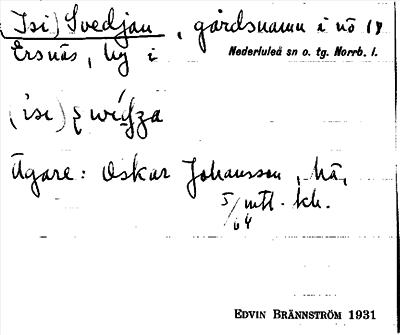 (Isi) Svedjan, gårdsnamn i nö 14
Ersnäs, by i Nederluleå sn o. tg. Norrb. l.
(isi)
Ägare: Oskar Johansson, hä,
5/64 mtt. kh.
EDVIN BRÄNNSTRÖM 1931